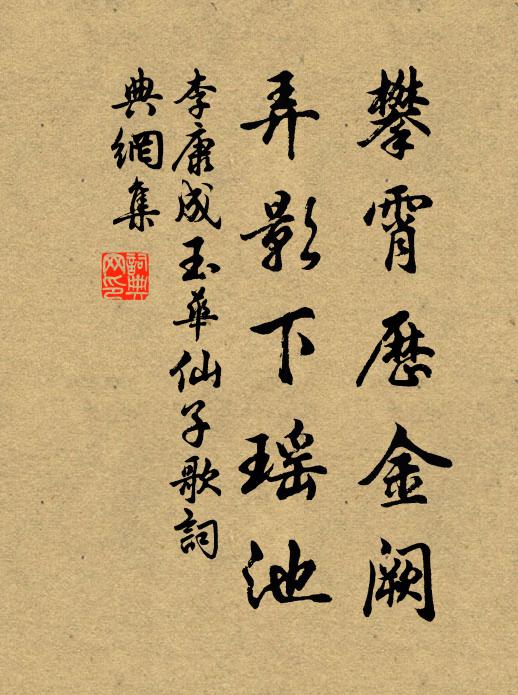 攀霄歷金闕
弄影下瑶池
李康成玉華仙子歌詞
典網集
詞典网印